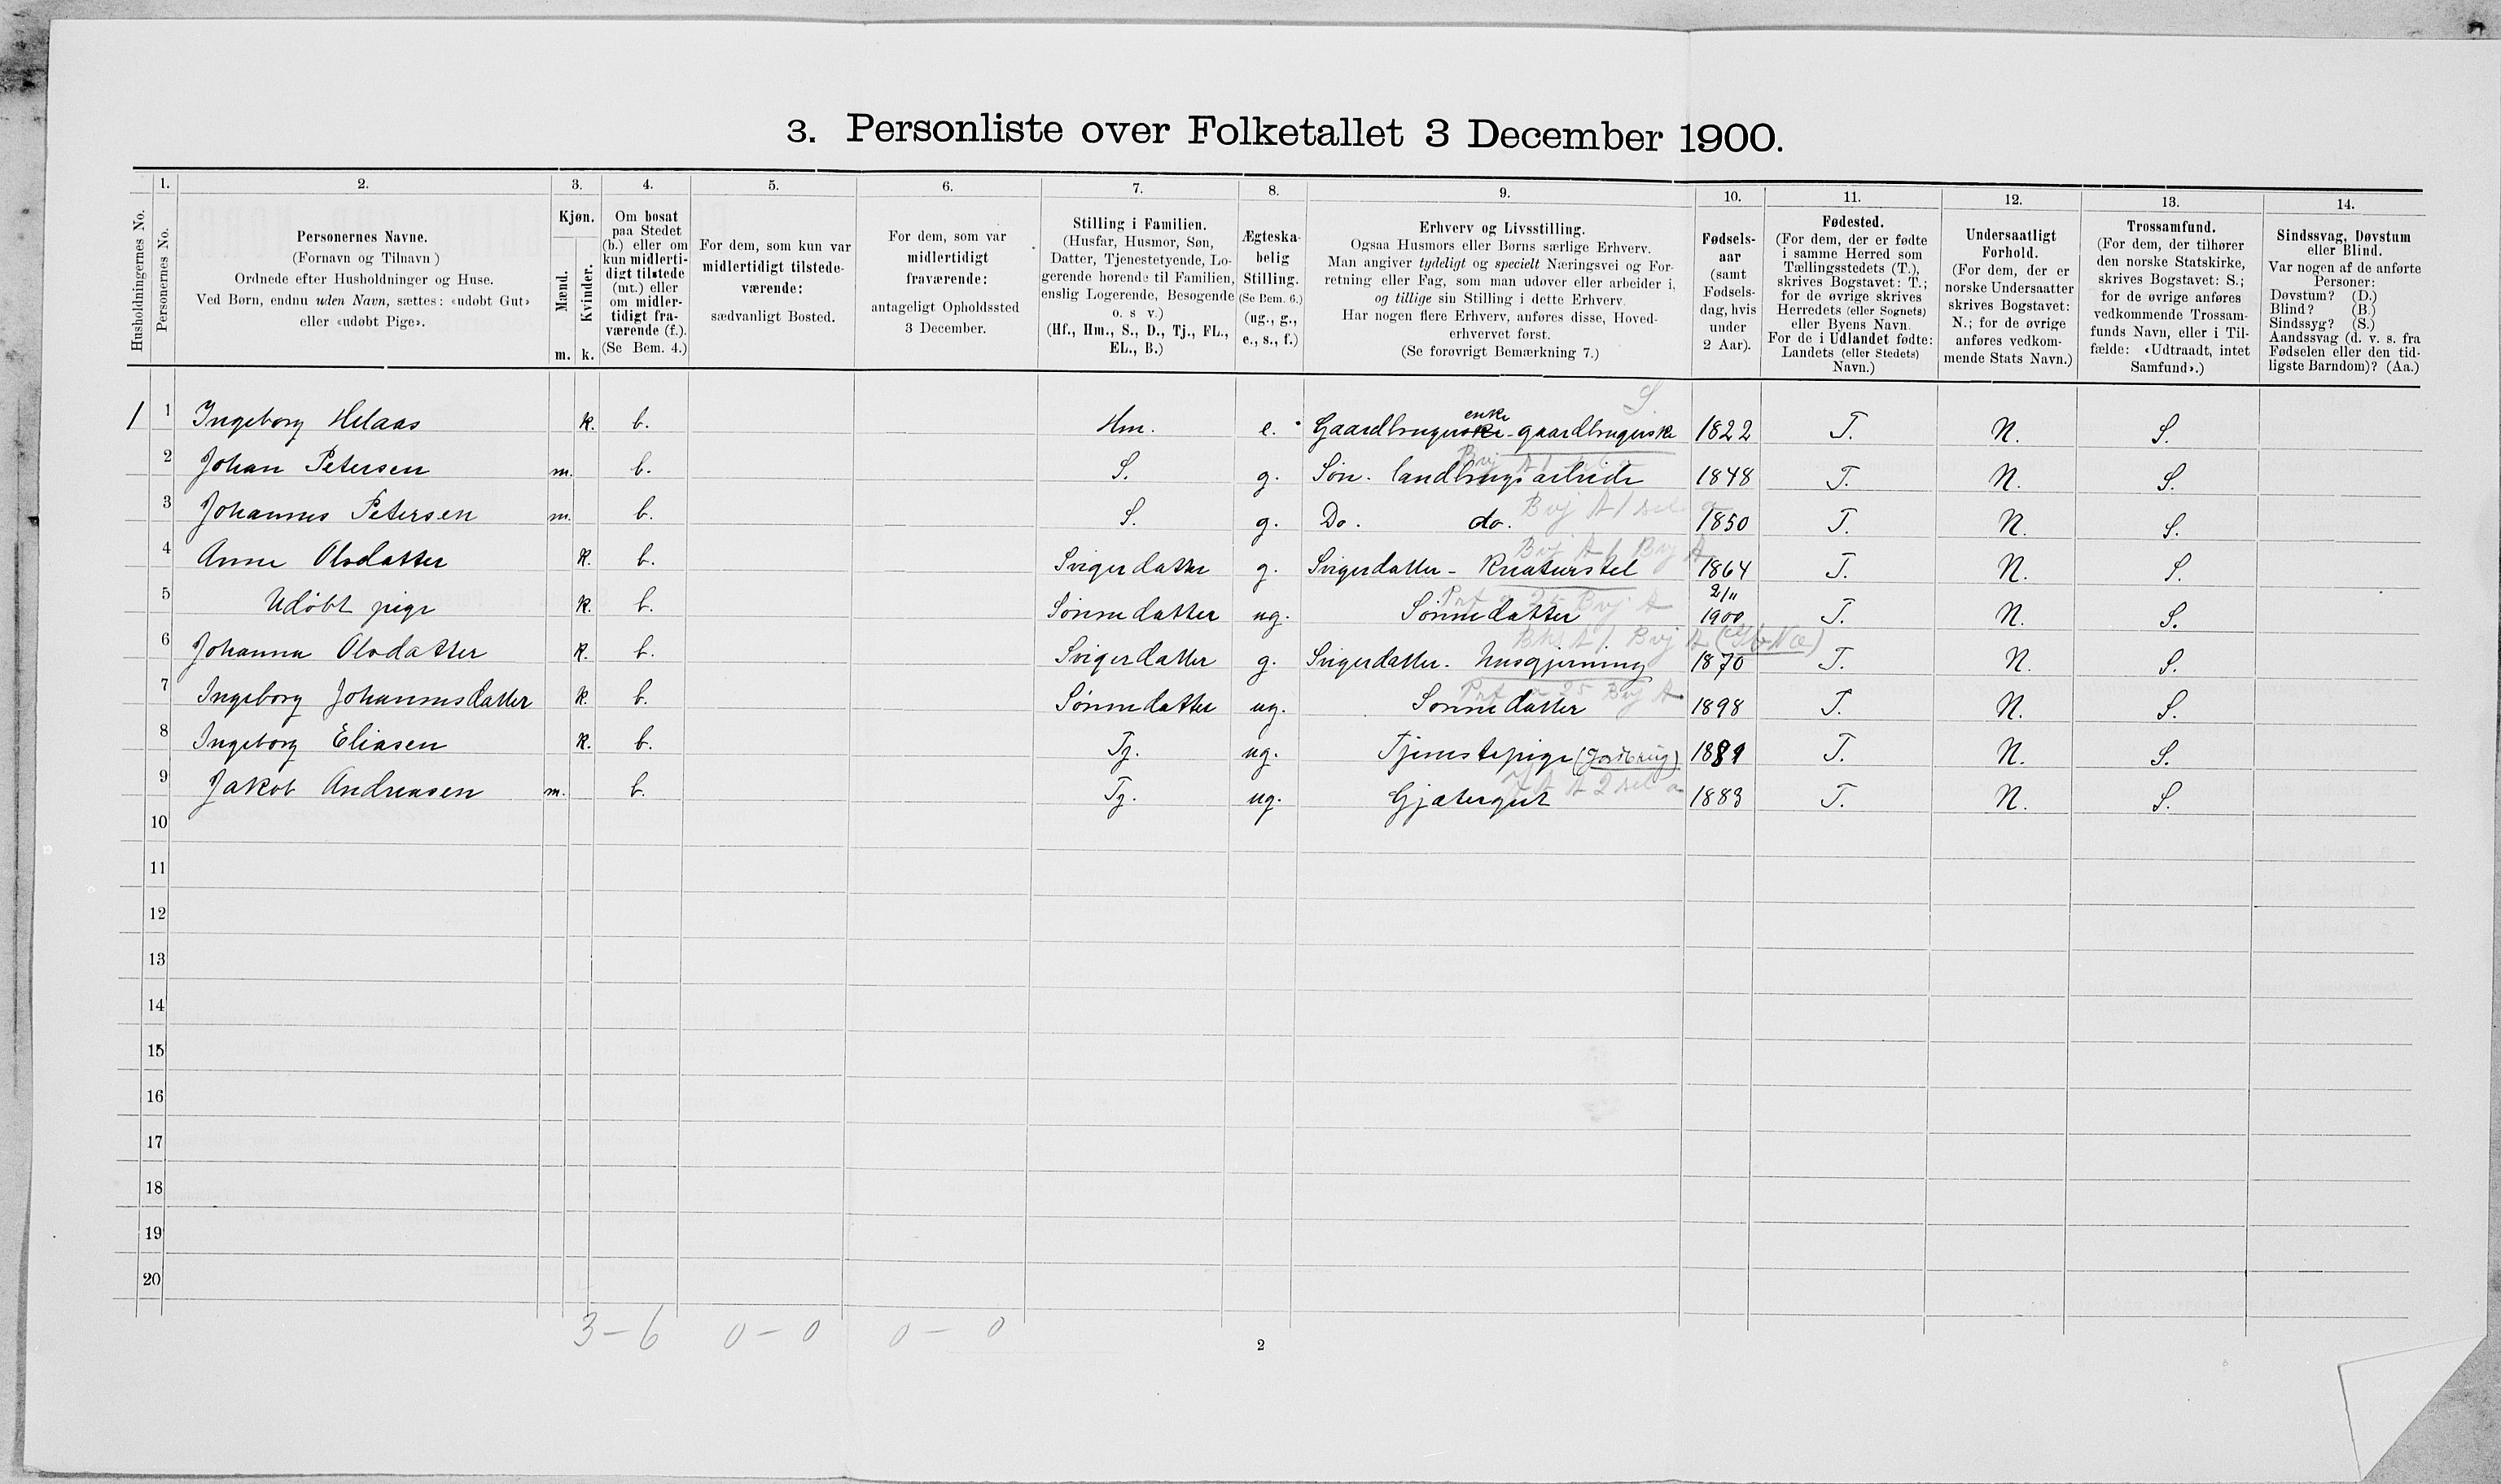 3. Personliste over Folketallet 3 December 1900.
1. 2. 3. 4. 5. 6. 7. 8. 9. 10. 11. 12. 13. 14.
Husholdningernes No.
Personernes No.
Personernes Navne.
(Fornavn og Tilnavn)
Ordnede efter Husholdninger og Huse.
Ved Børn, endnu uden Navn, sættes: «udøbt Gut»
eller «udøbt Pige».
Kjøn.
Mænd.
Kvinder.
m. k.
Om bosat
paa Stedet
(b.) eller om
kun midlerti-
digt tilstede
(mt.) eller
om midler-
tidigt fra-
værende (f.).
(Se Bem. 4.)
For dem, som kun var
midlertidigt tilstede-
værende:
sædvanligt Bosted.
For dem, som var
midlertidigt
fraværende:
antageligt Opholdssted
3 December.
Stilling i Familien.
(Husfar, Husmor, Søn,
Datter, Tjenestetyende, Lo-
gerende hørende til Familien,
enslig Logerende, Besøgende
o. s v.)
(Hf., Hm., S., D., Tj., FL.,
EL., B.)
Ægteska-
belig
Stilling.
(Se Bem. 6.)
(ug., g.,
e., s., f.)
Erhverv og Livsstilling.
Ogsaa Husmors eller Børns særlige Erhverv.
Man angiver tydeligt og specielt Næringsvei og For-
retning eller Fag, som man udøver eller arbeider i,
og tillige sin Stilling i dette Erhverv.
Har nogen flere Erhverv, anføres disse, Hoved-
erhvervet først.
(Se forøvrigt Bemærkning 7.)
Fødsels-
aar
(samt
Fødsels-
dag, hvis
under
2 Aar).
Fødested.
(For dem, der er fødte
i samme Herred som
Tællingsstedets (T.),
skrives Bogstavet: T.;
for de øvrige skrives
Herredets (eller Sognets)
eller Byens Navn.
For de i Udlandet fødte:
Landets (eller Stedets)
Navn.)
Undersaatligt
Forhold.
(For dem, der er
norske Undersaatter
skrives Bogstavet:
N.; for de øvrige
anføres vedkom-
mende Stats Navn.)
Trossamfund.
(For dem, der tilhører
den norske Statskirke,
skrives Bogstavet: S.;
for de øvrige anføres
vedkommende Trossam-
funds Navn, eller i Til-
fælde: «Udtraadt, intet
Samfund».)
Sindssvag, Døvstum
eller Blind.
Var nogen af de anførte
Personer:
Døvstum? (D.)
Blind? (B.)
Sindssyg? (S.)
Aandssvag (d. v. s. fra
Fødselen eller den tid-
ligste Barndom)? (Aa.)
1 1 Ingeborg Helaas k. b. Hm. e. Gaardbrugerske enke - gaardbrugerske 1822 T. N. S.
2 Johan Petersen m. b. S. g. Søn. landbrugsarbeide 1848 T. N. S.
3 Johannes Petersen m. b. S. g. Do. do. 1850 T. N. S.
4 Anne Olsdatter k. b. Svigerdatter g. Svigerdatter - Kreaturstel 1864 T. N. S.
5 Udøbt pige k. b. Sønnedatter ug. Sønnedatter 2/11 1900 T. N. S.
6 Johanna Olsdatter k. b. Svigerdatter g. Svigerdatter. husgjerning 1870 T. N. S.
7 Ingeborg Johannesdatter k. b. Sønnedatter ug. Sønnedatter 1898 T. N. S.
8 Ingeborg Eliasen k. b. Tj. ug. Tjenestepige (jordbrug) 1881 T. N. S.
9 Jakob Andreasen m. b. Tj. ug. Gjætergut 1883 T. N. S.
10
11
12
13
14
15
16
17
18
19
20
3 - 6 0 - 0 0 - 0
2